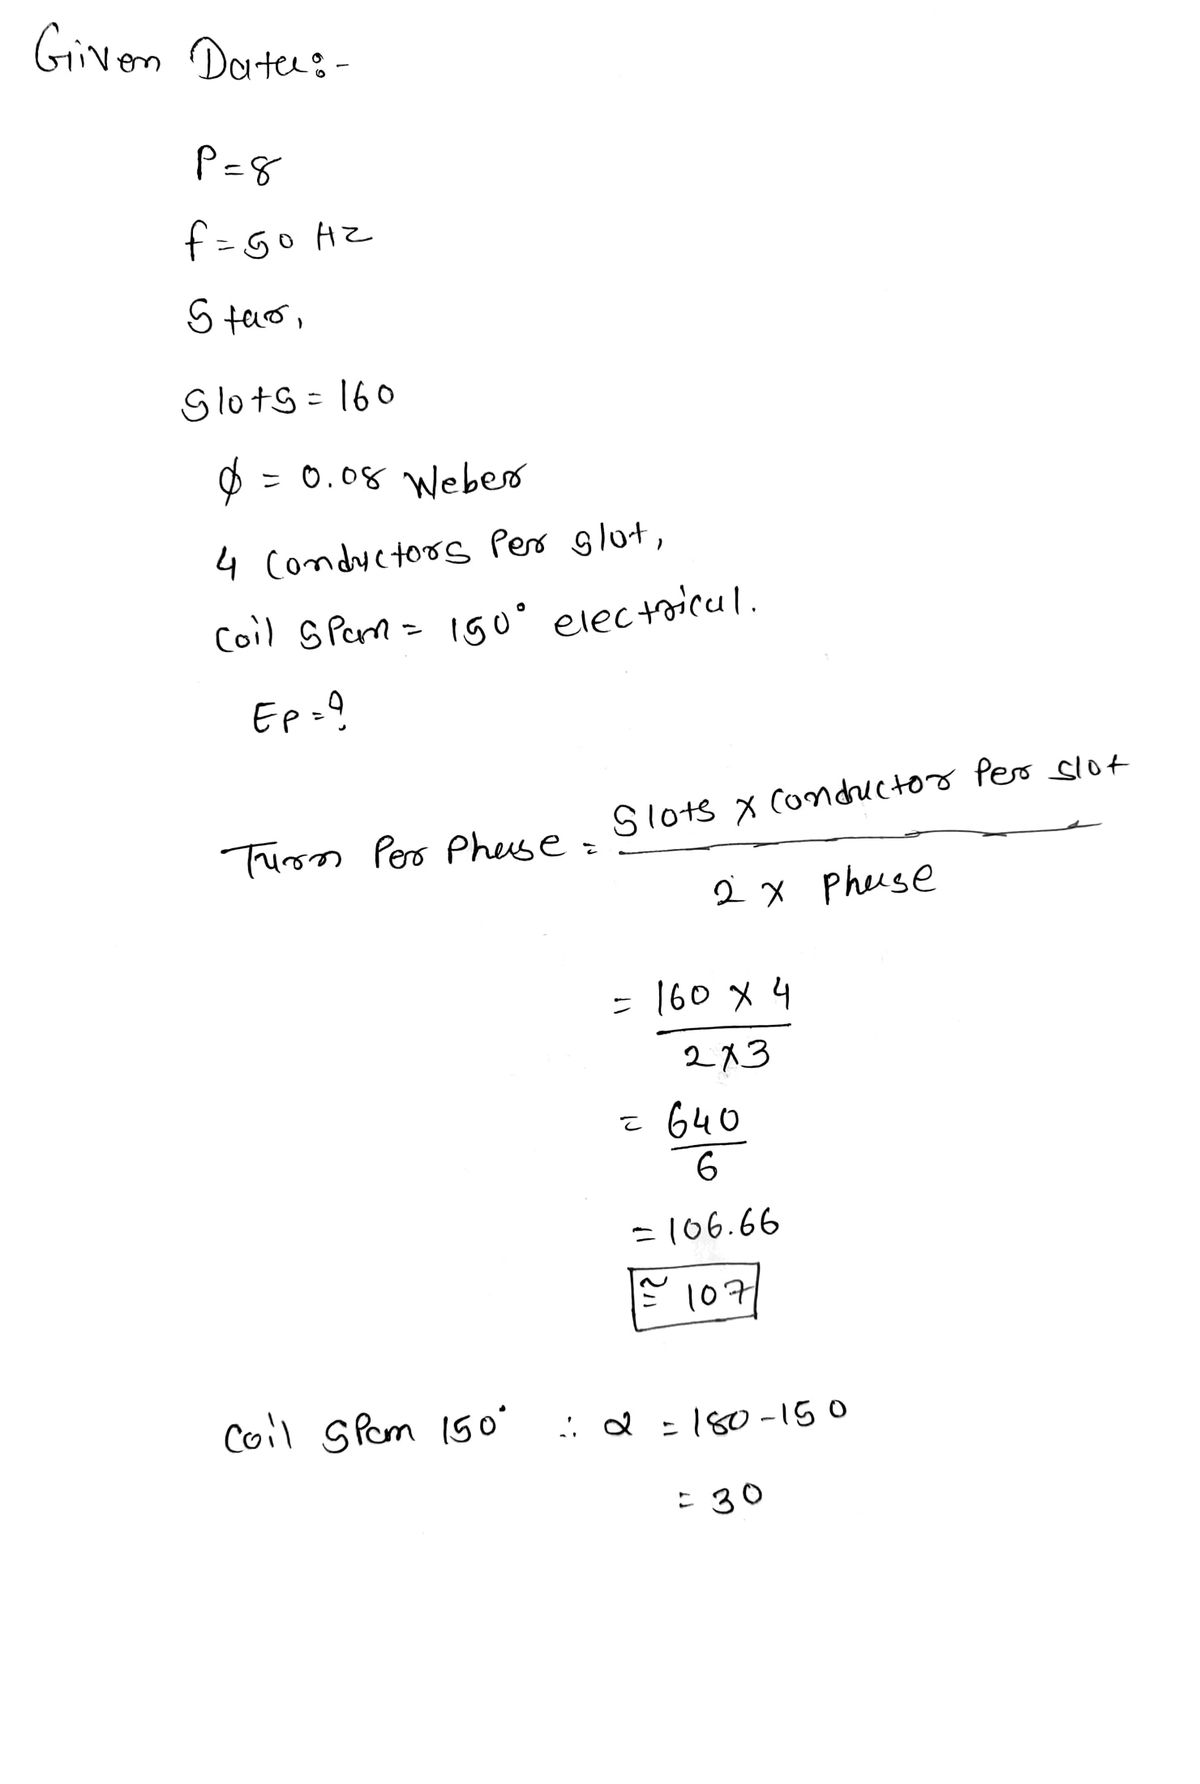 Given Data:-
P=8
f=50 Hz
Star,
Slots = 160
φ = 0.08 Weber
4 Conductors Per slot,
Coil Span = 150° electrical.
Ep=?
Turn Per Phase = Slots x Conductor Per slot
2 x Phase
= 160 x 4
2x3
= 640
6
= 106.66
≅ 107
Coil Span 150° ∴ α = 180-150
= 30